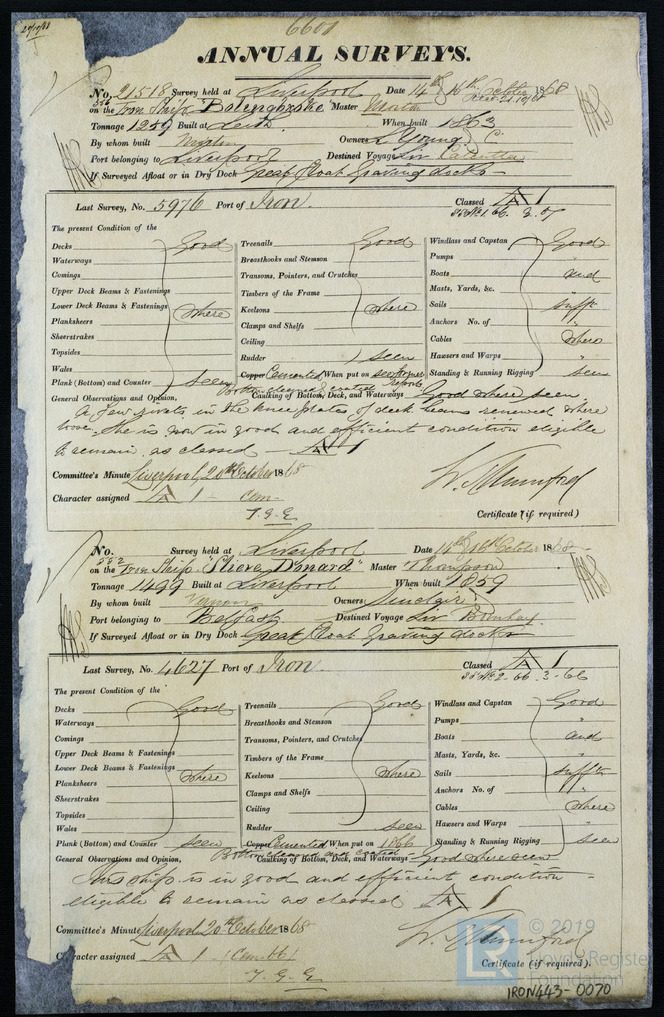 6601
ANNUAL SURVEYS.
No. 21518 Survey held at Liverpool Date 14th & 16th October 1868
on the Iron Ship "Bolingbroke" Master
Tonnage 1299 Built at Leith When built 1863
By whom built Owners Young
Port belonging to Liverpool Destined Voyage Liv Calcutta
If Surveyed Afloat or in Dry Dock Great Float Graving docks
Last Survey, No. 5976 Port of Iron. Classed A 1
The present Condition of the
Decks Good Treenails Good Windlass and Capstan Good
Waterways Breasthooks and Stemson Pumps "
Comings Transoms, Pointers, and Crutches Boats and
Upper Deck Beams & Fastenings Timbers of the Frame Masts, Yards, &c. "
Lower Deck Beams & Fastenings where Keelsons where Sails sufft
Planksheers Clamps and Shelfs Anchors No. of "
Sheerstrakes Ceiling Cables where
Topsides Rudder seen Hawsers and Warps "
Wales Copper Cemented When put on see former reports Standing & Running Rigging seen
Plank (Bottom) and Counter seen Bottom cleaned & coated
General Observations and Opinion, Caulking of Bottom, Deck, and Waterways Good where seen
A few rivets in the knee plates of deck beams renewed where
loose. She is now in good and efficient condition eligible
to remain as classed A 1
Committee's Minute Liverpool, 20th October 1868
Character assigned A 1
Certificate (if required)
No. Survey held at Liverpool Date 14th & 16th October 1868
on the Iron Ship "Slieve Donard" Master Thompson
Tonnage 1499 Built at Liverpool When built 1859
By whom built Vernon Owners Sinclair
Port belonging to Belfast Destined Voyage Liv Bombay
If Surveyed Afloat or in Dry Dock Great Float Graving docks
Last Survey, No. 4627 Port of Iron. Classed A 1
The present Condition of the
Decks Good Treenails Good Windlass and Capstan Good
Waterways Breasthooks and Stemson Pumps "
Comings Transoms, Pointers, and Crutches Boats and
Upper Deck Beams & Fastenings Timbers of the Frame Masts, Yards, &c. "
Lower Deck Beams & Fastenings where Keelsons where Sails sufft
Planksheers Clamps and Shelfs Anchors No. of "
Sheerstrakes Ceiling Cables where
Topsides Rudder seen Hawsers and Warps "
Wales Copper Cemented When put on 1866 Standing & Running Rigging seen
Plank (Bottom) and Counter seen Bottom cleaned and coated
General Observations and Opinion, Caulking of Bottom, Deck, and Waterways Good where seen
This ship is in good and efficient condition
eligible to remain as classed A 1
Committee's Minute Liverpool 20th October 1868
Character assigned A 1
Certificate (if required).
© 2019
Lloyd's Register
Foundation
IRON443-0070